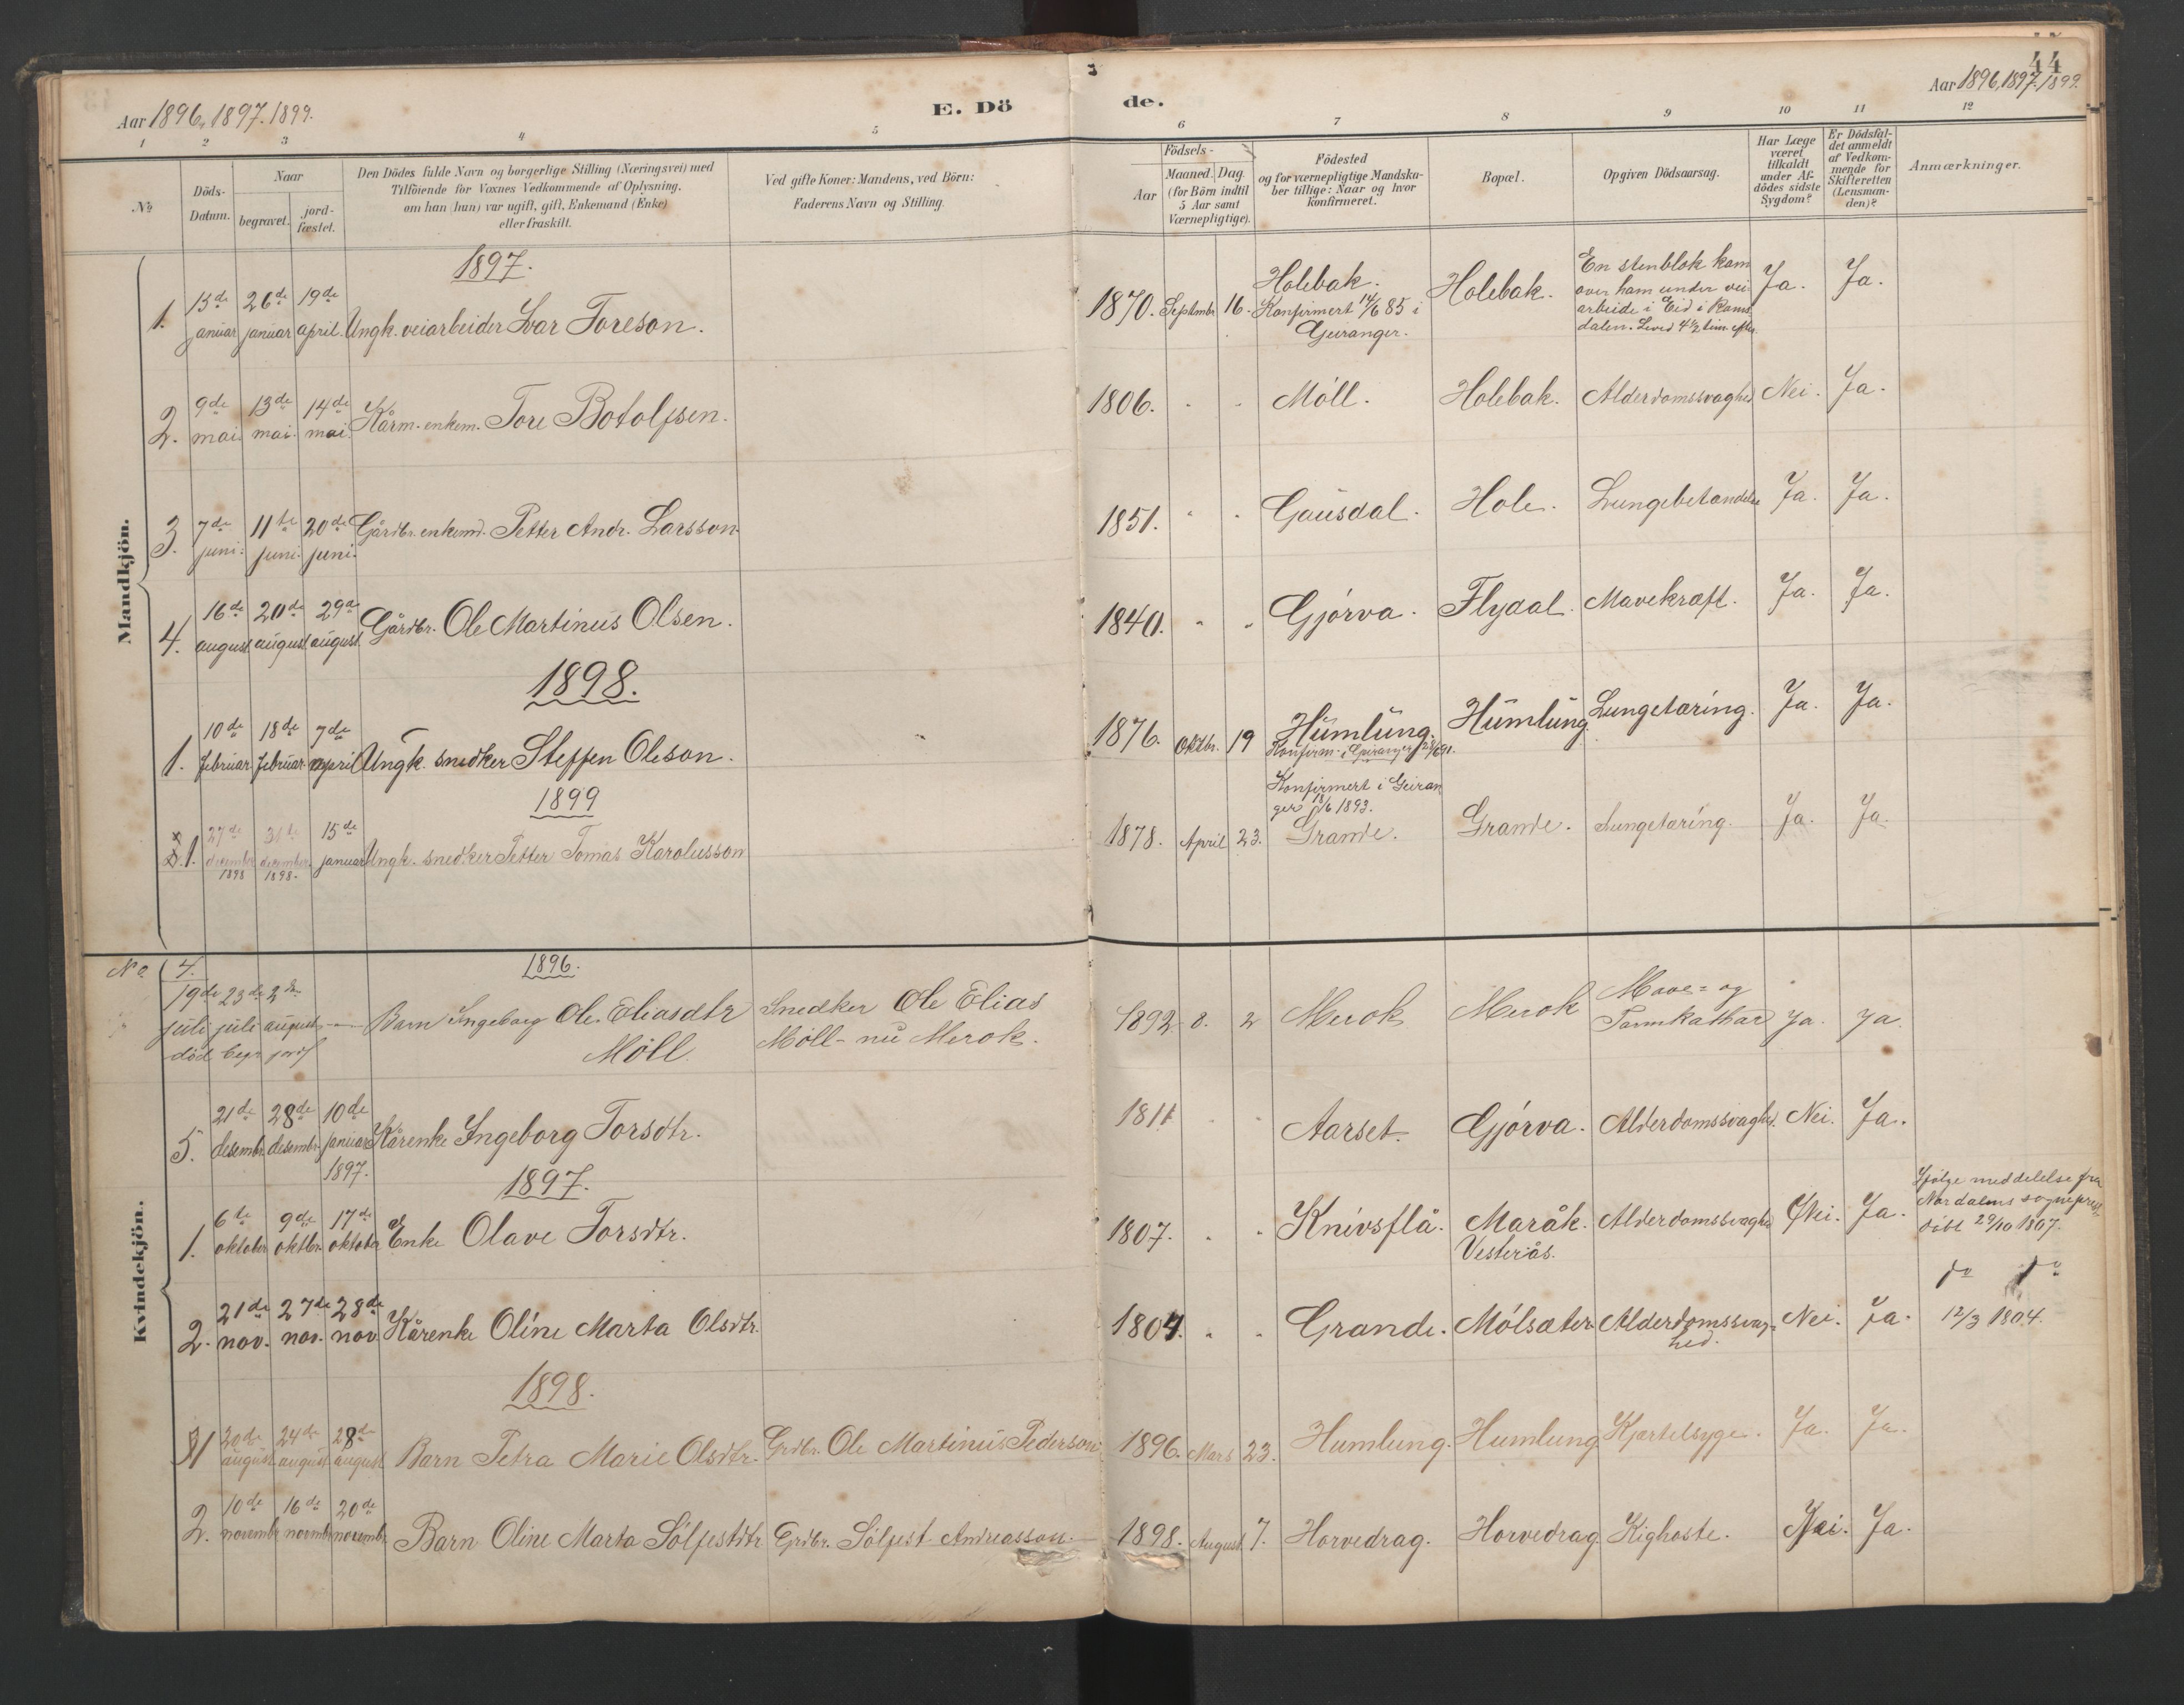 44
Aar 1896, 1897. 1899.
E. Dö
de.
Aar 1896, 1897. 1899.
1 2 3 4 5 6 7 8 9 10 11 12
No
Döds-
Datum.
Naar
begravet.
jord-
fæstet.
Den Dödes fulde Navn og borgerlige Stilling (Næringsvei) med
Tilföiende for Voxnes Vedkommende af Oplysning,
om han (hun) var ugift, gift, Enkemand (Enke)
eller fraskilt.
Ved gifte Koner: Mandens, ved Börn:
Faderens Navn og Stilling.
Födsels-
Aar
Maaned. Dag.
(for Börn indtil
5 Aar samt
Værnepligtige).
Födested
og for værnepligtige Mandska-
ber tillige: Naar og hvor
konfirmeret.
Bopæl.
Opgiven Dödsaarsag.
Har Læge
været
tilkaldt
under Af-
dödes sidste
Sygdom?
Er Dödsfal-
det anmeldt
af Vedkom-
mende for
Skifteretten
(Lensman-
den)?
Anmærkninger.
Mandkjön.
1897.
1. 13de januar 26de januar 19de april. Ungk. veiarbeider Ivar Toreson.
1870. Septembr 16. Holebak.
Konfirmert 14/6 85 i
Geiranger.
Holebak.
En stenblok kom
over ham under vei
arbeide i Eid i Roms
dalen. Leved 4 1/2 tim. efter.
Ja. Ja.
2. 9de mai 13de mai. 14de mai. Kårm. enkem. Tore Botolfsen.
1806. Móll. Holebak. Alderdomssvaghed Nei. Ja.
3. 7de juni. 11te juni. 20de juni. Gårdbr. enkemd. Petter Andr. Larsson.
1851. Gausdal. Hole. Lungebetændelse Ja. Ja.
4. 16de august 20de august 29de august Gårdbr. Ole Martinus Olsen.
1840. Gjórva. Flydal. Mavekræft. Ja. Ja.
1898.
1. 10de februar 18de februar 7de april Ungk. snedker Steffen Oleson.
1876. Oktbr. 19 Humlung.
Konfirm. i Geiranger
Humlung. Lungetæring. Ja. Ja.
1899
1. 27de december 1898 31te december 1898. 15de januar Ungk. snedker Petter Tomas Karolusson
Konfirmert i Geiran
ger 18/6 1893.
1878. April 23. Grande. Grande. Lungetæring. Ja. Ja.
Kvindekjön.
1896.
No. 4.
19de juli död 23de juli begr. 2den august jordf. Barn Ingeborg Ole-Eliasdtr
Móll.
Snedker Ole Elias
Móll - nu Merok.
1892 8. 2 Merok Merok Mave- og
Tarmkathar Ja. Ja.
5. 21de desembr. 28de desembr. 10de januar 1897. Kårenke Ingeborg Torsdtr.
1811 Aarset. Gjórva. Alderdomssvaghed. Nei. Ja.
1897.
1. 6te oktober 9de oktbr. 17de oktober Enke Olave Torsdtr.
1807. Knivsflå. Maråk.
Vesterås.
Alderdomssvaghed Nei. Ja.
Ifólge meddelelse fra
Nordalens sogneprest
1807.
2. 21de nov. 27de nov. 28de nov. Kårenke Oline Marta Olsdtr.
1804. Grande. Mólsæter. Alderdomssvag-
hed.
Nei. Ja.
do do
12/3 1804.
1898.
1 20de august 24de august 28de august Barn Petra Marie Olsdtr. Grdbr. Ole Martinus Pederson.
1896. Mars 23. Humlung. Humlung. Kjertelsyge. Ja. Ja.
2. 10de novembr 16de novmbr 20de novembr. Barn Oline Marta Sólfestdtr Grdbr. Sólfest Andreasson.
1898. August 7. Horvedrag. Horvedrag. Kighoste. Nei. Ja.